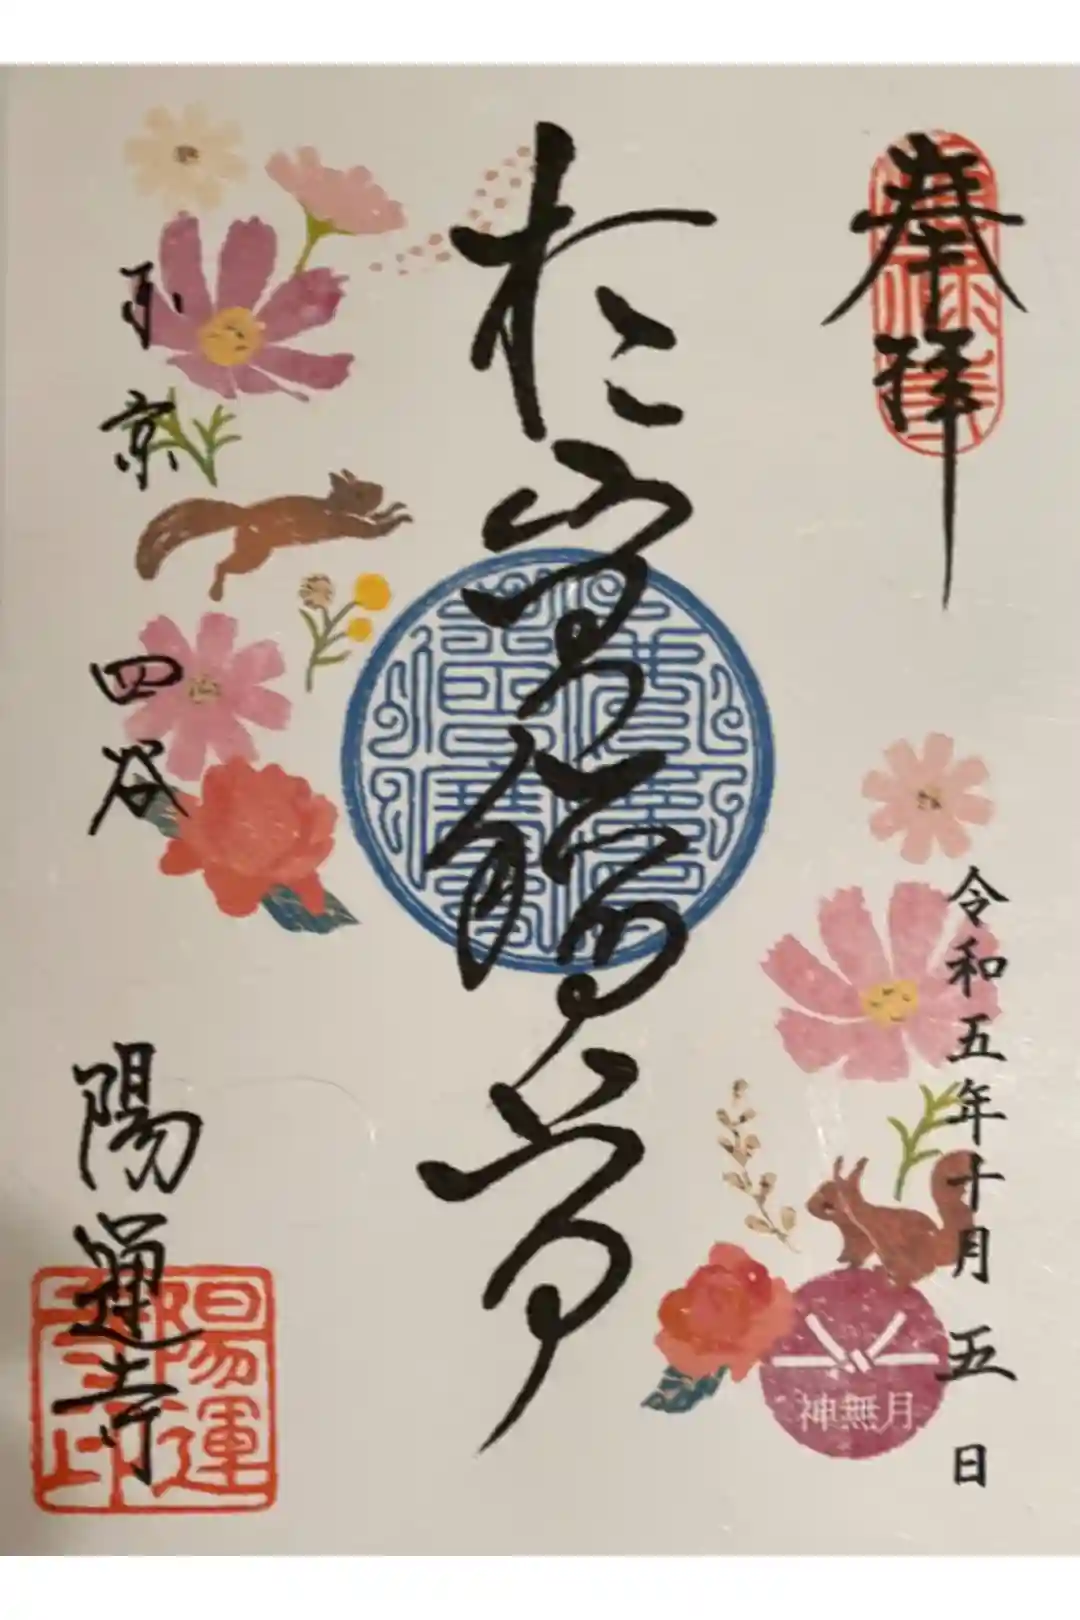 奉拝
令和五年十月五日
神無月
於岩稲荷
東京四谷
陽運寺
陽運
寺印